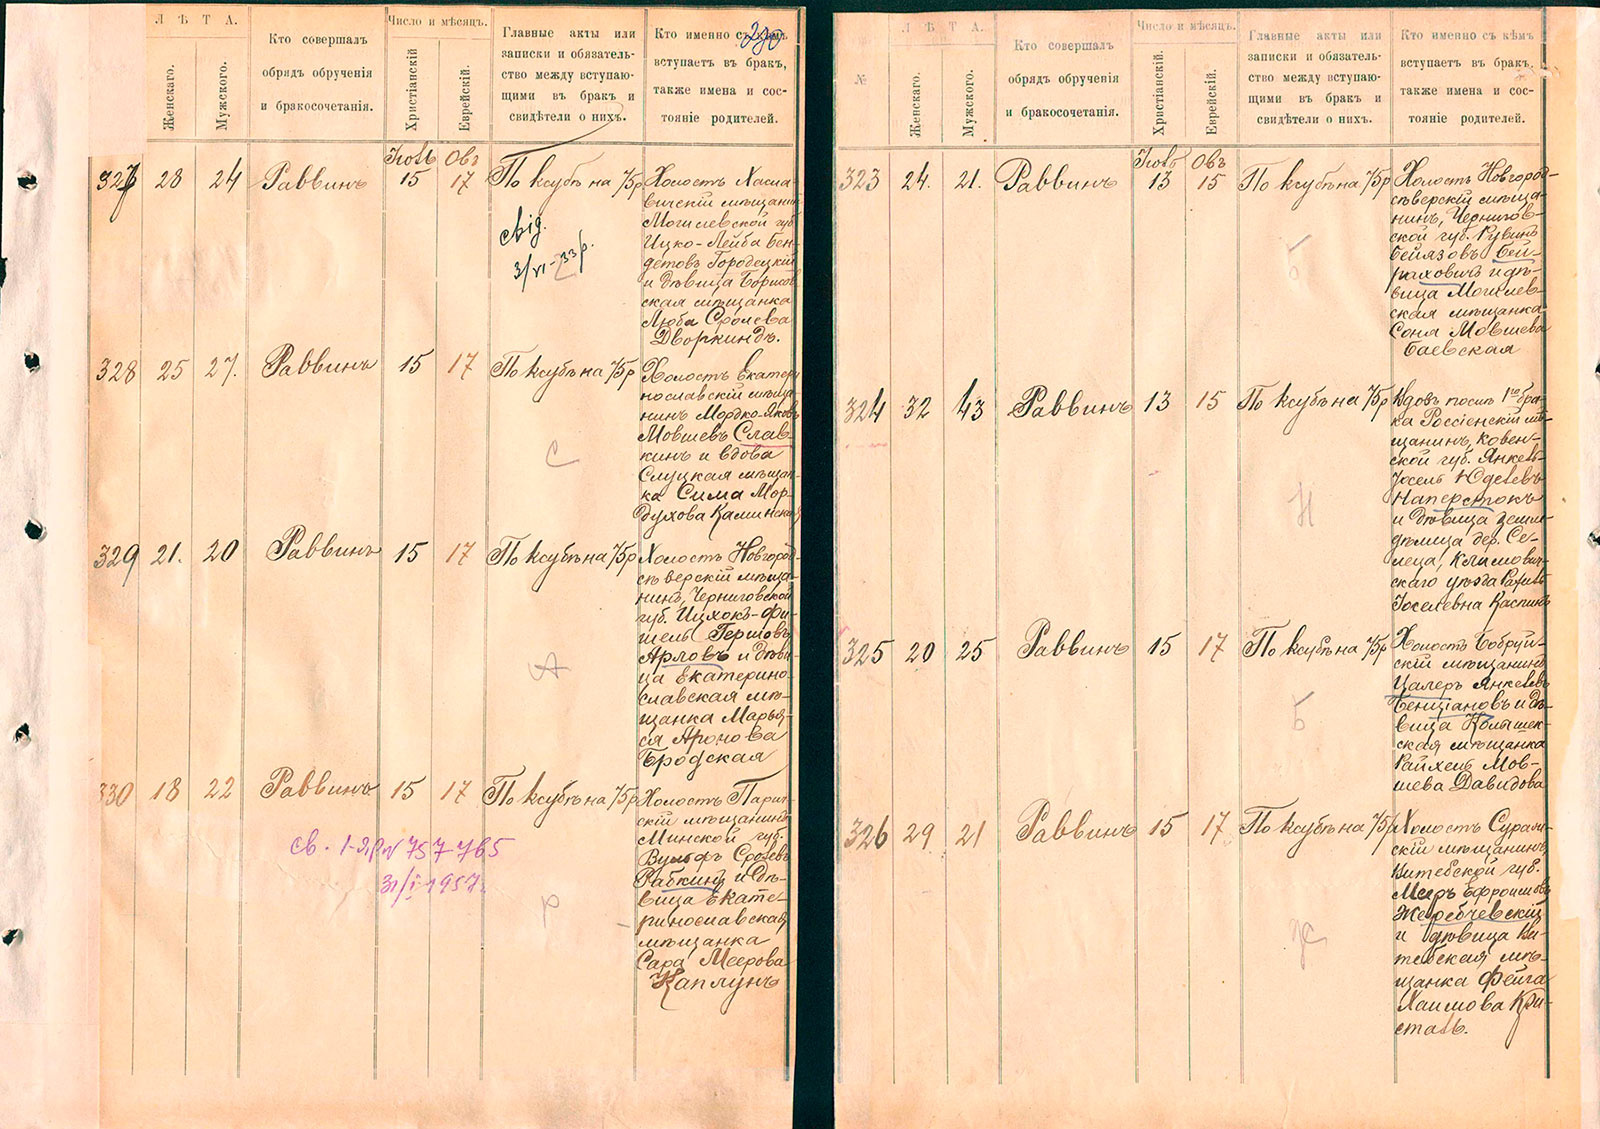 ЛѢТА.
Женскаго.
Мужского.
Кто совершалъ
обрядъ обрученія
и бракосочетанія.
Число и мѣсяцъ.
Христіанскій
Еврейскій.
Главные акты или
записки и обязатель-
ство между вступаю-
щими въ бракъ и
свидѣтели о нихъ.
Кто именно съ кѣмъ
вступаетъ въ бракъ,
также имена и сос-
тояніе родителей.
230
327 28 24 Раввинъ Іюль 15 Овъ 17 По ксубѣ на 75р
Холостъ Хасла-
вичскій мѣщанинъ
Могилевской губ.
Ицко-Лейба Бен-
детовъ Городецкій
и дѣвица Борисов-
ская мѣщанка
Люба Сролева
Дворкиндъ.
328 25 27. Раввинъ 15 17 По ксубѣ на 75р
Холостъ Екатери-
нославскій мѣща-
нинъ Мордко-Яковъ
Мовшевъ Слав-
кинъ и вдова
Слуцкая мѣщан-
ка Сима Мор-
духова Каминская
С
329 21. 20 Раввинъ 15 17 По ксубѣ на 75р
Холостъ Новгород-
сѣверскій мѣща-
нинъ, Черниговской
губ. Ицхокъ-Фи-
шель Гершовъ
Арловъ и дѣви-
ца Екатерино-
славская мѣ-
щанка Марья-
ся Аронова
Бродская
А
330 18 22 Раввинъ 15 17 По ксубѣ на 75р
Холостъ Парич-
скій мѣщанинъ
Минской губ.
Вульфъ Сролевъ
Рабкинъ и дѣ-
вица Екате-
ринославская
мѣщанка
Сара Меерова
Каплунъ
Р
31/I 1957
№
ЛѢТА.
Женскаго.
Мужского.
Кто совершалъ
обрядъ обрученія
и бракосочетанія.
Число и мѣсяцъ.
Христіанскій.
Еврейскій.
Главные акты или
записки и обязатель-
ство между вступаю-
щими въ бракъ и
свидѣтели о нихъ.
Кто именно съ кѣмъ
вступаетъ въ бракъ,
также имена и сос-
тояніе родителей.
323 24. 21. Раввинъ Іюль 13 Овъ 15 По ксубѣ на 75р
Холостъ Новгород-
сѣверскій мѣща-
нинъ, Чернигов-
ской губ. Рувинъ
Бейлзовъ Бей-
рахович и дѣ-
вица Могилев-
ская мѣщанка
Соня Мовшева
Баевская
Б
324 32 43 Раввинъ 13 15 По ксубѣ на 75р
Вдовъ послѣ 1го бра-
ка Россіенскій мѣ-
щанинъ, Ковен-
ской губ. Янкель-
Іосель Юделевъ
Наперстокъ
и дѣвица земле-
дѣлица дер. Се-
леца, Климович-
скаго уѣзда
Іоселевна Каспинъ
Н
325 20 25 Раввинъ 15 17 По ксубѣ на 75р
Холостъ Бобруй-
скій мѣщанинъ
Цалеръ Янкелевъ
Бенціановъ и дѣ-
вица Колышек-
ская мѣщанка
Райхель Мов-
шева Давидова
Б
326 29 21 Раввинъ 15 17 По ксубѣ на 75р
Холостъ Сураж-
скій мѣщанинъ,
Витебской губ.
Мееръ Ефроимовъ
Жеребчевскій
и дѣвица Ви-
тебская мѣ-
щанка Фейга
Хаимова Кри-
сталь.
Ж